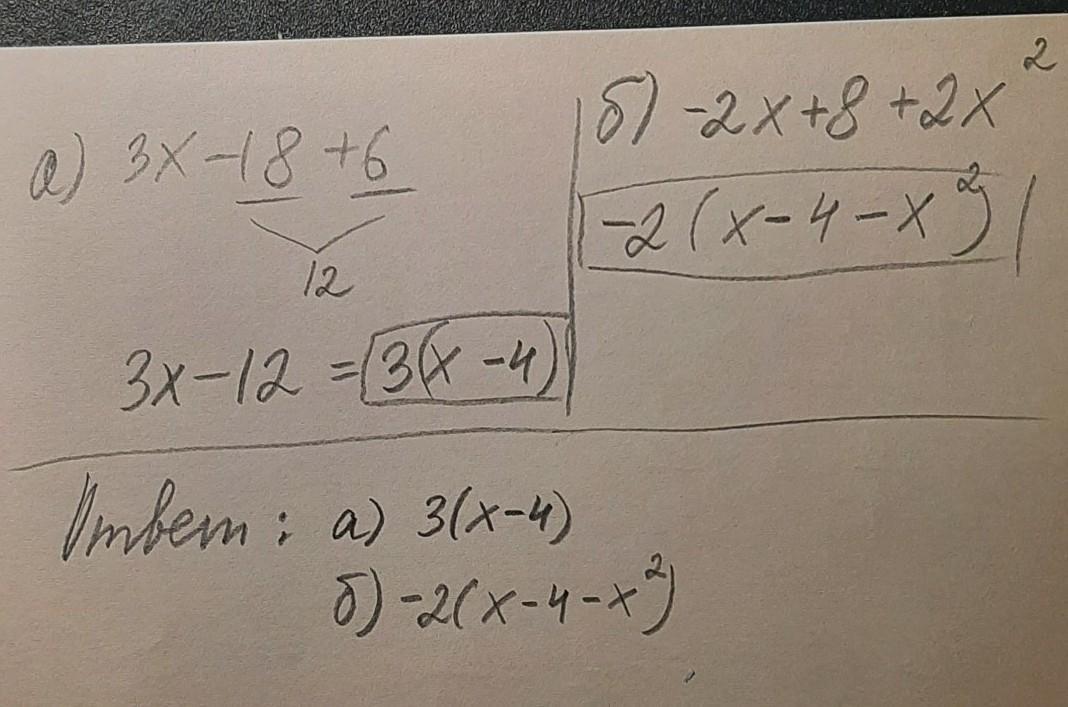 а) 3x -18 +6
12
3x-12 = 3(x-4)
б) -2x+8+2x²
-2(x-4-x²)
Ответ: а) 3(x-4)
б) -2(x-4-x²)